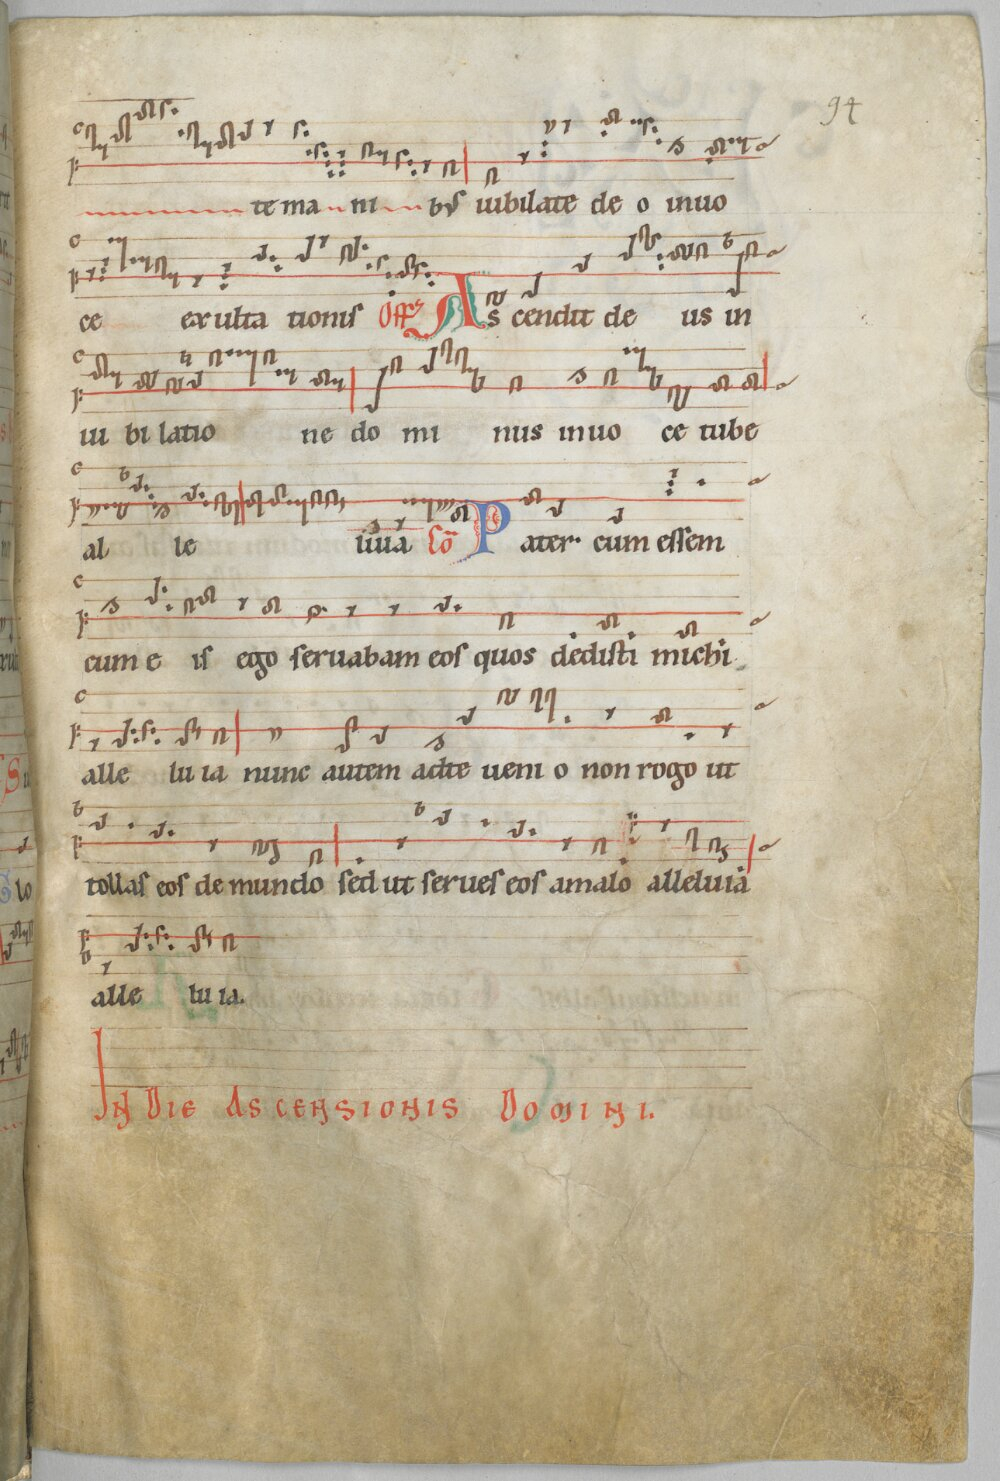 94
te ma ni bus iubilate de o in uo
ce exulta tionis Offs As cendit de us in
iu bi latio ne do mi nus in uo ce tube
al le luia Cō Pater cum essem
cum e is ego seruabam eos quos dedisti michi
alle lu ia nunc autem adte ueni o non rogo ut
tollas eos de mundo sed ut serues eos amalo alleluia
alle lu ia.
In Die Ascensionis Domini.